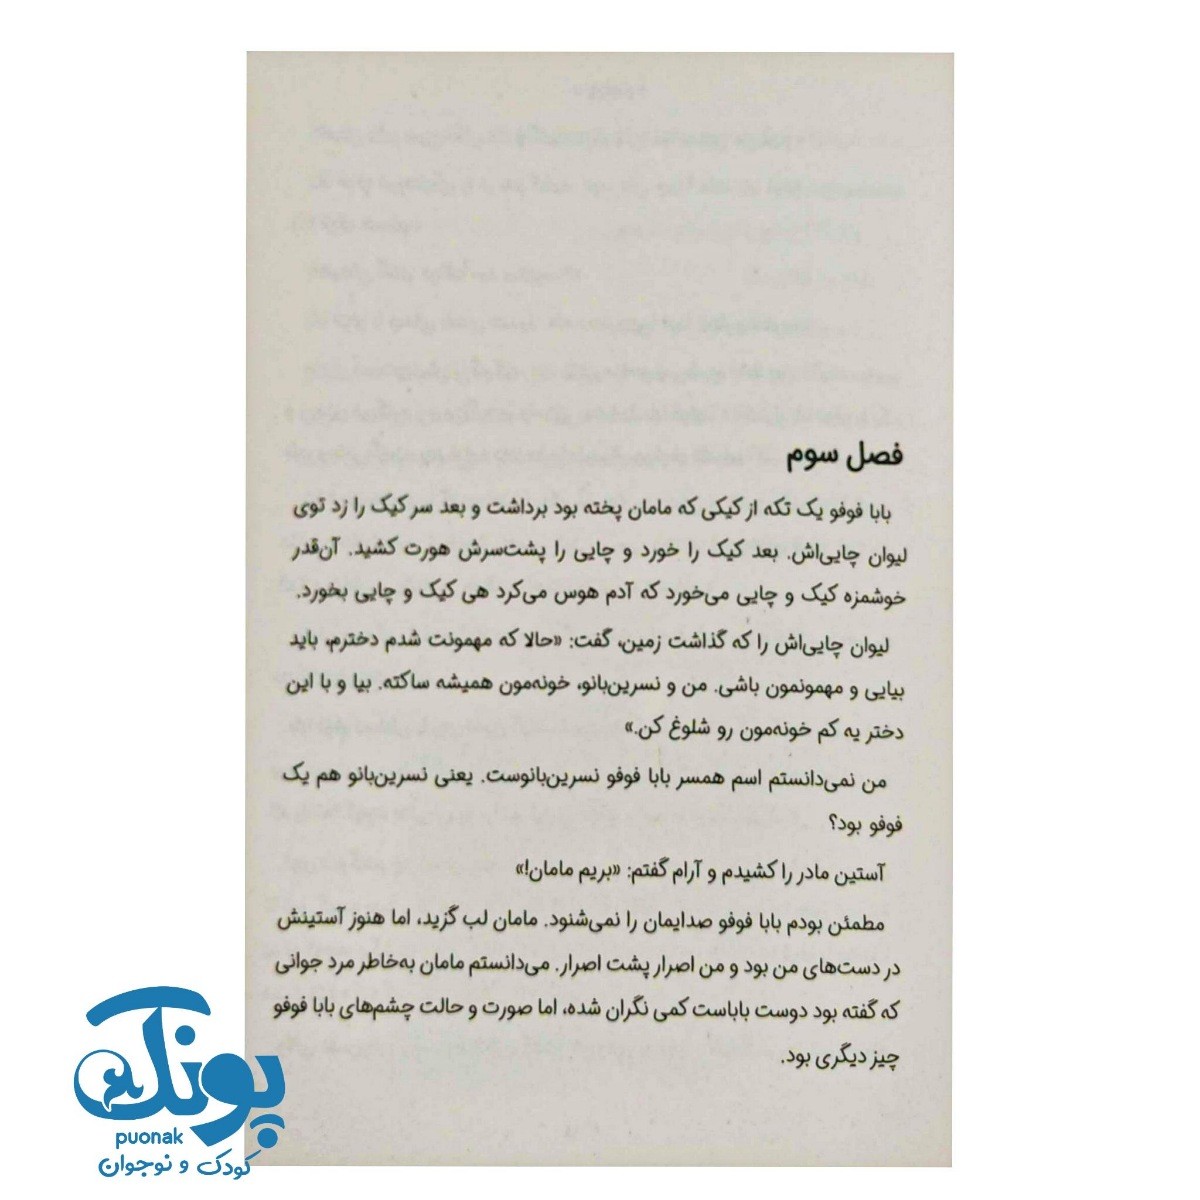 فصل سوم
بابا فوفو یک تکه از کیکی که مامان پخته بود برداشت و بعد سر کیک را زد توی
لیوان چایی‌اش. بعد کیک را خورد و چایی را پشت‌سرش هورت کشید. آن‌قدر
خوشمزه کیک و چایی می‌خورد که آدم هوس می‌کرد هی کیک و چایی بخورد.
لیوان چایی‌اش را که گذاشت زمین، گفت: «حالا که مهمونت شدم دخترم، باید
بیایی و مهمونمون باشی. من و نسرین‌بانو، خونه‌مون همیشه ساکته. بیا و با این
دختر یه کم خونه‌مون رو شلوغ کن.»
من نمی‌دانستم اسم همسر بابا فوفو نسرین‌بانوست. یعنی نسرین‌بانو هم یک
فوفو بود؟
آستین مادر را کشیدم و آرام گفتم: «بریم مامان!»
مطمئن بودم بابا فوفو صدایمان را نمی‌شنود. مامان لب گزید، اما هنوز آستینش
در دست‌های من بود و من اصرار پشت اصرار. می‌دانستم مامان به‌خاطر مرد جوانی
که گفته بود دوست باباست کمی نگران شده، اما صورت و حالت چشم‌های بابا فوفو
چیز دیگری بود.
پونک
puonak
کودک و نوجوان